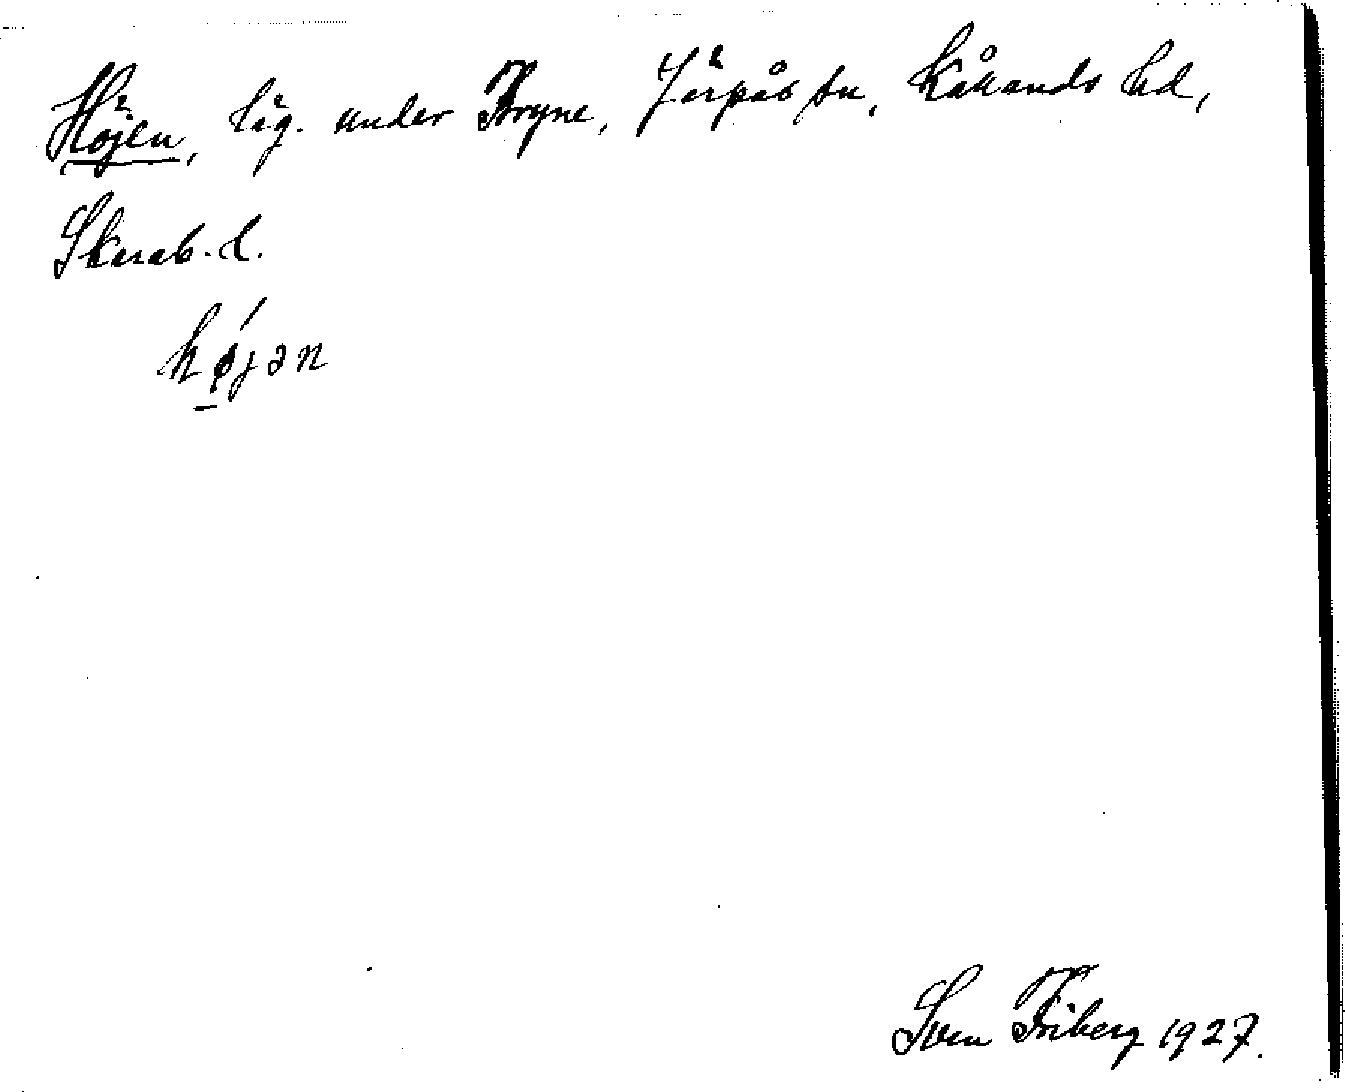 Höjen, läg. under Fryne, Järpås sn, Kållands hd,
Skarab. l.
højən
Sven Friberg 1927.